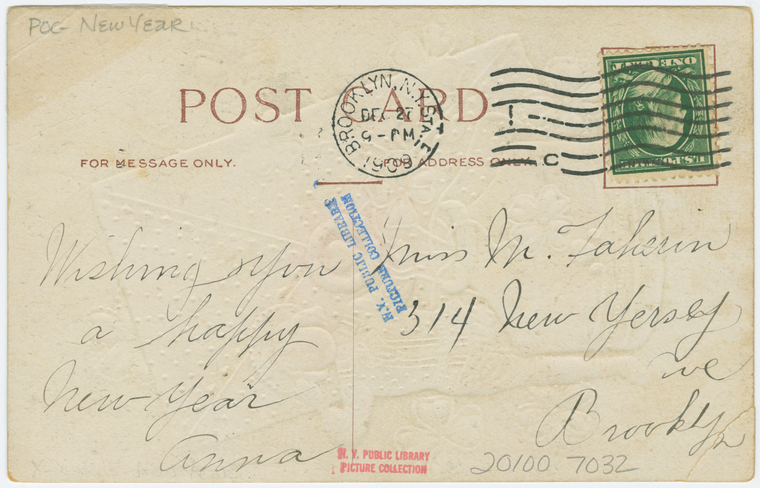 POC- New Year
POST CARD
BROOKLYN, N.Y. STA.
DEC 27
9-PM
1909
C
ONE CENT
FOR MESSAGE ONLY.
FOR ADDRESS ONLY.
N.Y. PUBLIC LIBRARY
PICTURE COLLECTION
Wishing you
a happy
New Year
Anna
Miss M.
314 New Yersey
ve
Brooklyn
N. Y. PUBLIC LIBRARY
PICTURE COLLECTION
20100 7032